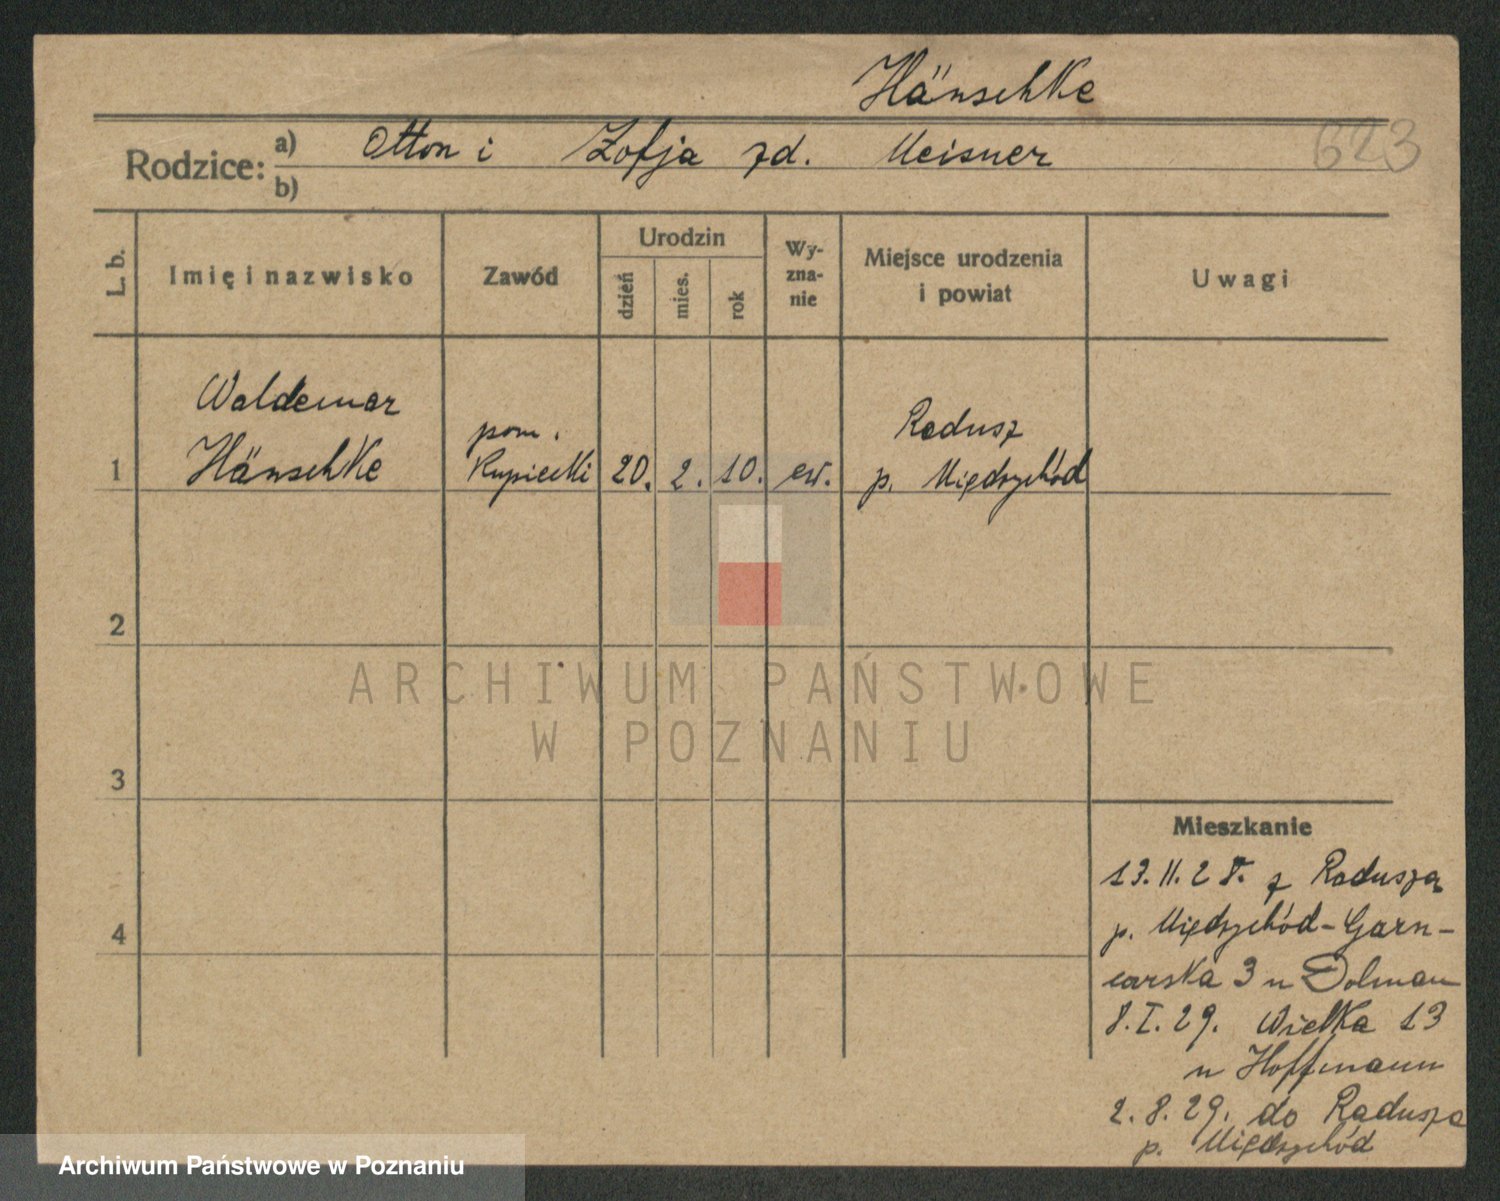 Hänschke
623
Rodzice: a) Otton i Zofja zd. Meisner
b)
L. b.
Imię i nazwisko
Zawód
Urodzin
dzień
mies.
rok
Wy-
zna-
nie
Miejsce urodzenia
i powiat
Uwagi
Waldemar
Hänschke
pom.
Kupiecki
Radusz
p. Międzychód
1
20. 2. 10. ew.
2
3
4
Mieszkanie
13. II. 28. z Radusza
p. Międzychód - Garn-
carska 3 u Dolman
8. I. 29. Wielka 13
u Hoffmann
2. 8. 29. do Radusza
p. Międzychód
ARCHIWUM PAŃSTWOWE
W POZNANIU
Archiwum Państwowe w Poznaniu